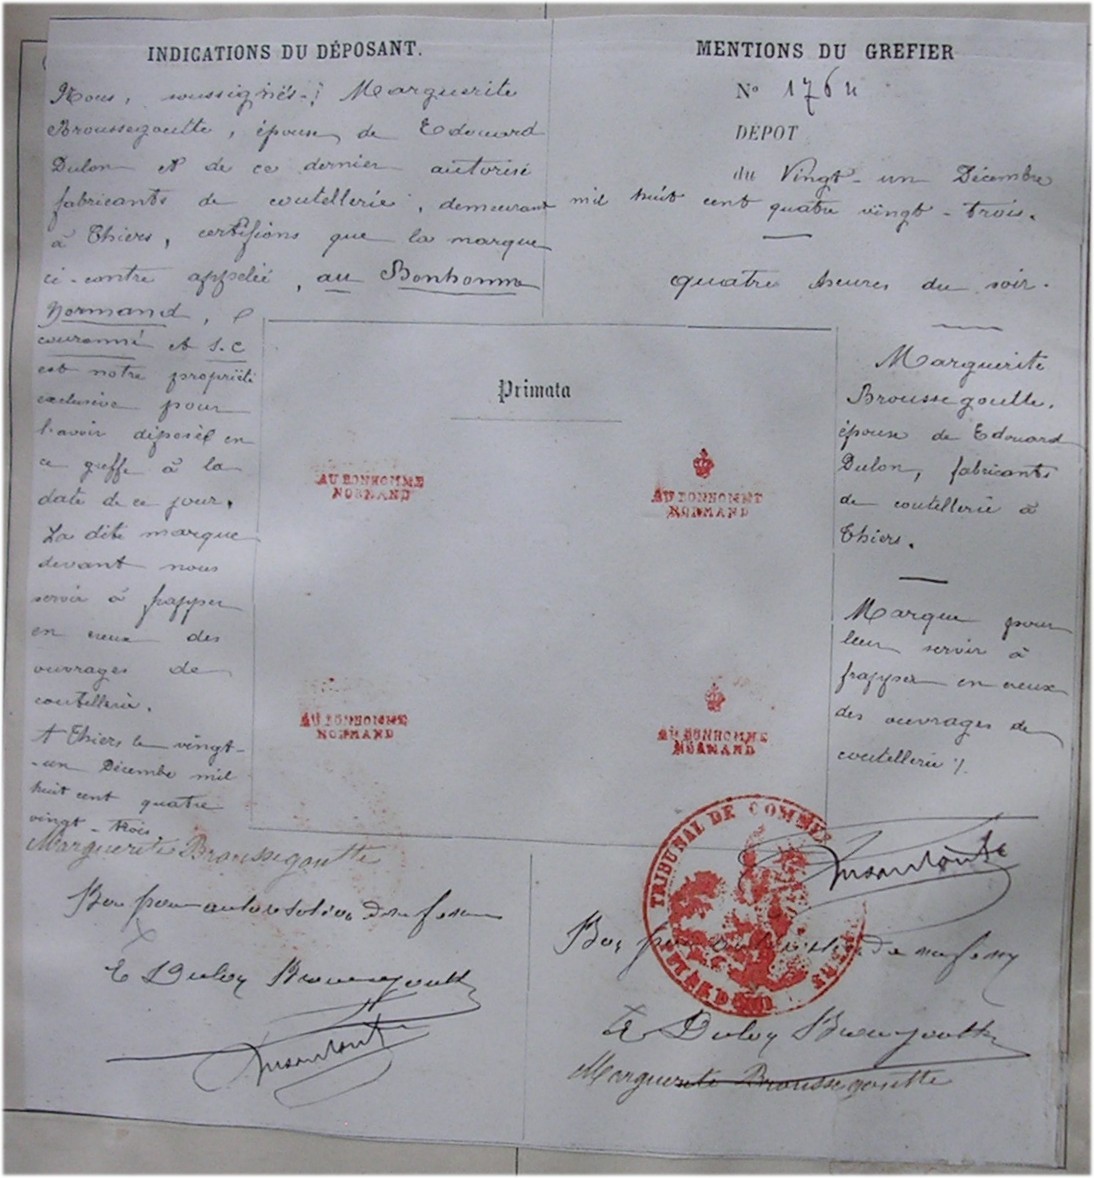 INDICATIONS DU DÉPOSANT.
Nous, soussignés, Marguerite
Broussegoutte, épouse de Edouard
Dulon et de ce dernier autorisé
fabricants de coutellerie, demeurant
à Thiers, certifions que la marque
ci-contre appelée, au Bonhomme
Normand,
couronné et S.C
est notre propriété
exclusive pour
l'avoir déposée en
ce greffe à la
date de ce jour.
La dite marque
devant nous
servir à frapper
en creux des
ouvrages de
coutellerie.
A Thiers le vingt-
-un Décembre mil
huit cent quatre
vingt-trois.
Marguerite Broussegoutte
Bon pour autorisation de ma femme
E Dulon Broussegoutte
MENTIONS DU GREFIER
No 1764
DÉPOT
du Vingt-un Décembre
mil huit cent quatre vingt-trois.
quatre heures du soir.
Marguerite
Broussegoutte,
épouse de Edouard
Dulon, fabricants
de coutellerie à
Thiers.
Marque pour
leur servir à
frapper en creux
des ouvrages de
coutellerie ./.
Primata
AU BONHOMME
NORMAND
AU BONHOMME
NORMAND
AU BONHOMME
NORMAND
AU BONHOMME
NORMAND
TRIBUNAL DE COMMERCE
Bon pour autorisation de ma femme
E Dulon Broussegoutte
Marguerite Broussegoutte